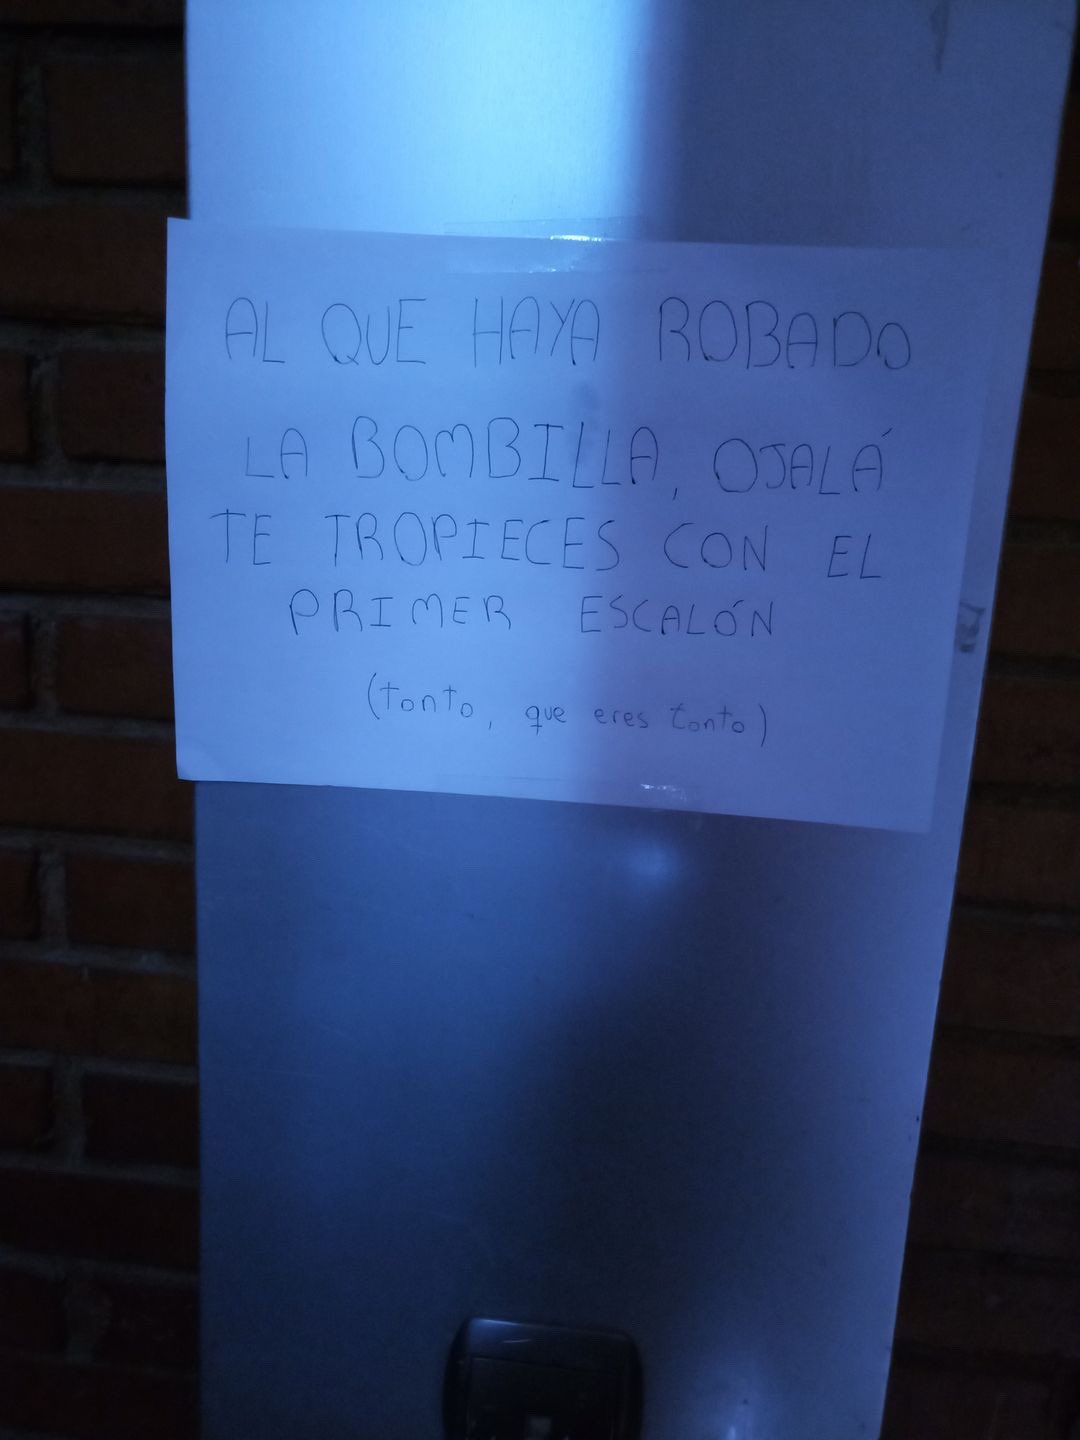 AL QUE HAYA ROBADO
LA BOMBILLA, OJALÁ
TE TROPIECES CON EL
PRIMER ESCALÓN
(tonto, que eres tonto)